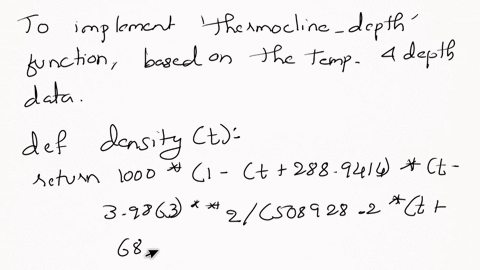 To implement 'thermocline_depth'
function, based on the temp. & depth
data.
def density(t):
return 1000 * (1 - (t + 288.9414) * (t -
3.9863) ** 2/(508928.2 * (t +
68